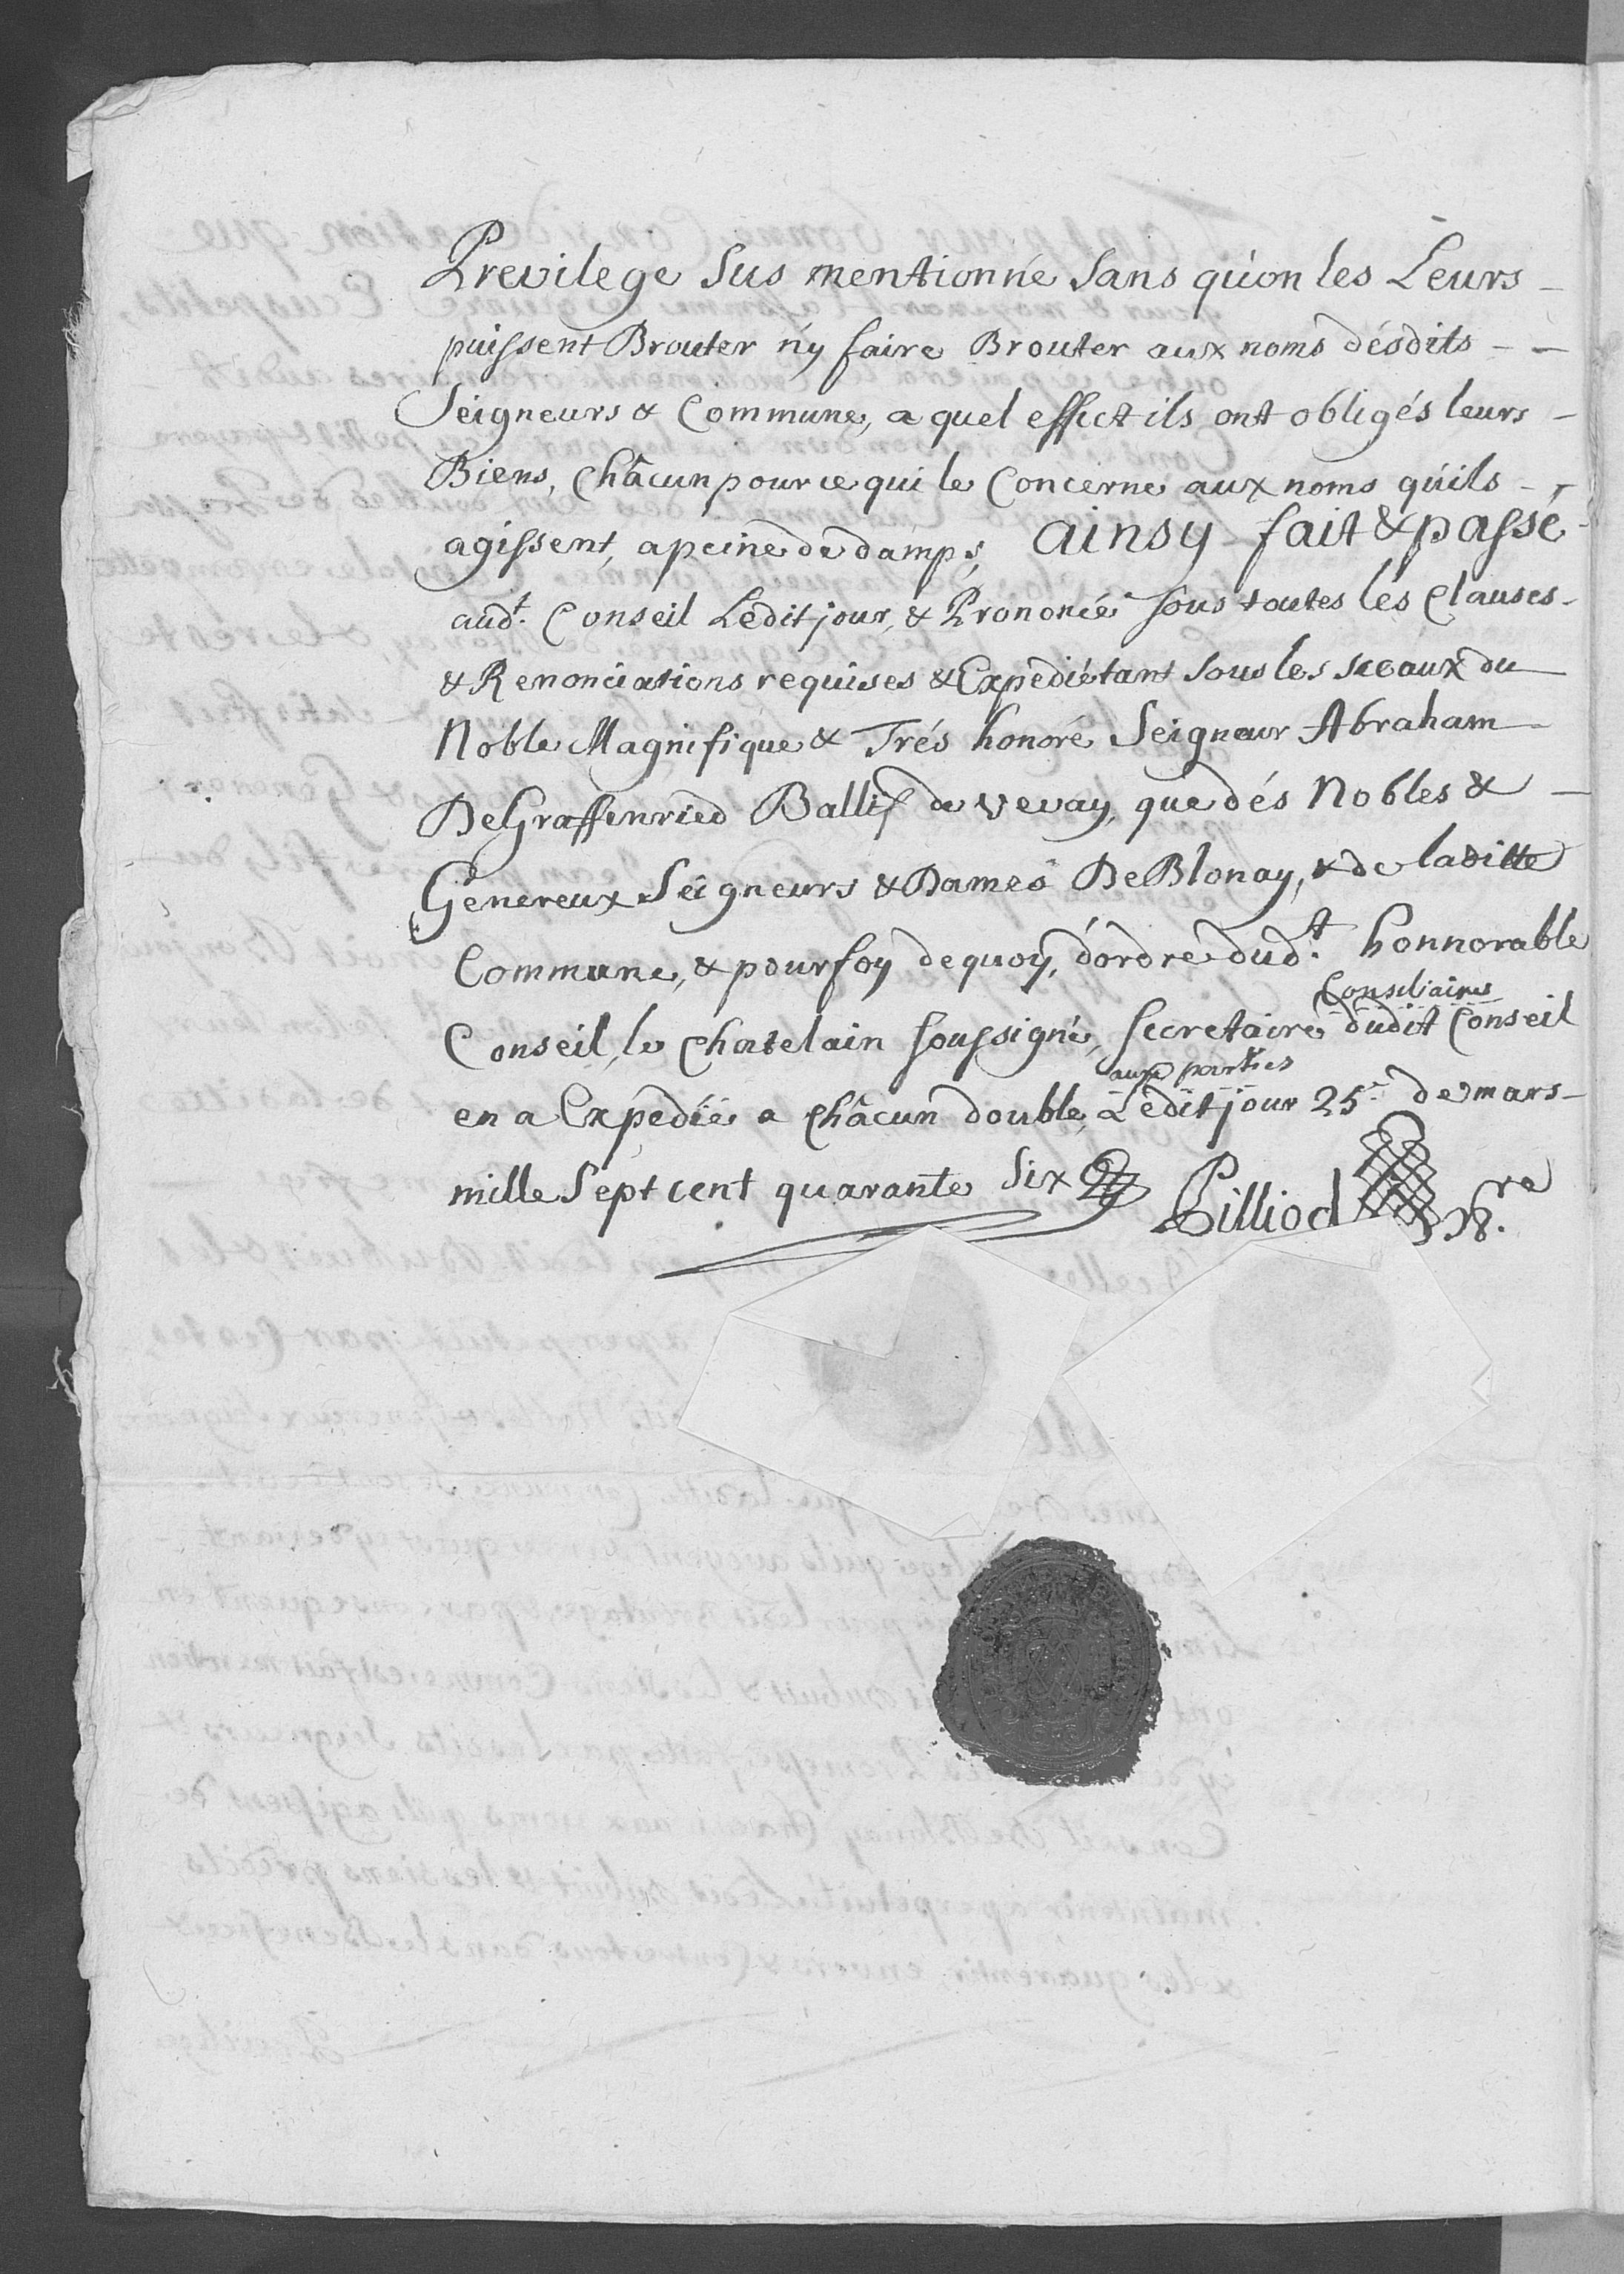 Previlege sus mentionné sans qu'on les Leurs
puissent Brouter n'y faire Brouter aux noms désdits
Seigneurs & Commune, a quel effect ils ont obligés leurs
Biens, châcun pour ce qui le Concerne aux noms qu'ils
agissent, a peine de damps, ainsy fait & passé
aud.t Conseil Ledit jour, & Prononcé sous toutes les Clauses
& Renonciations requises & Expedié tant sous les sceaux du
Noble Magnifique & Trés honoré Seigneur Abraham
De Graffenried Ballif de vevay, que dés Nobles &
Genereux Seigneurs & Dames De Blonay, & de laditte
Commune, & pour foy dequoy, d'ordre dud.t honnorable
Conseil, le Chatelain soussigné, secretaire Consiliaires dudit Conseil
en a Expedié a châcun double, aux parties Ledit jour 25.e de mars
mille Sept cent quarante six
Pilliod